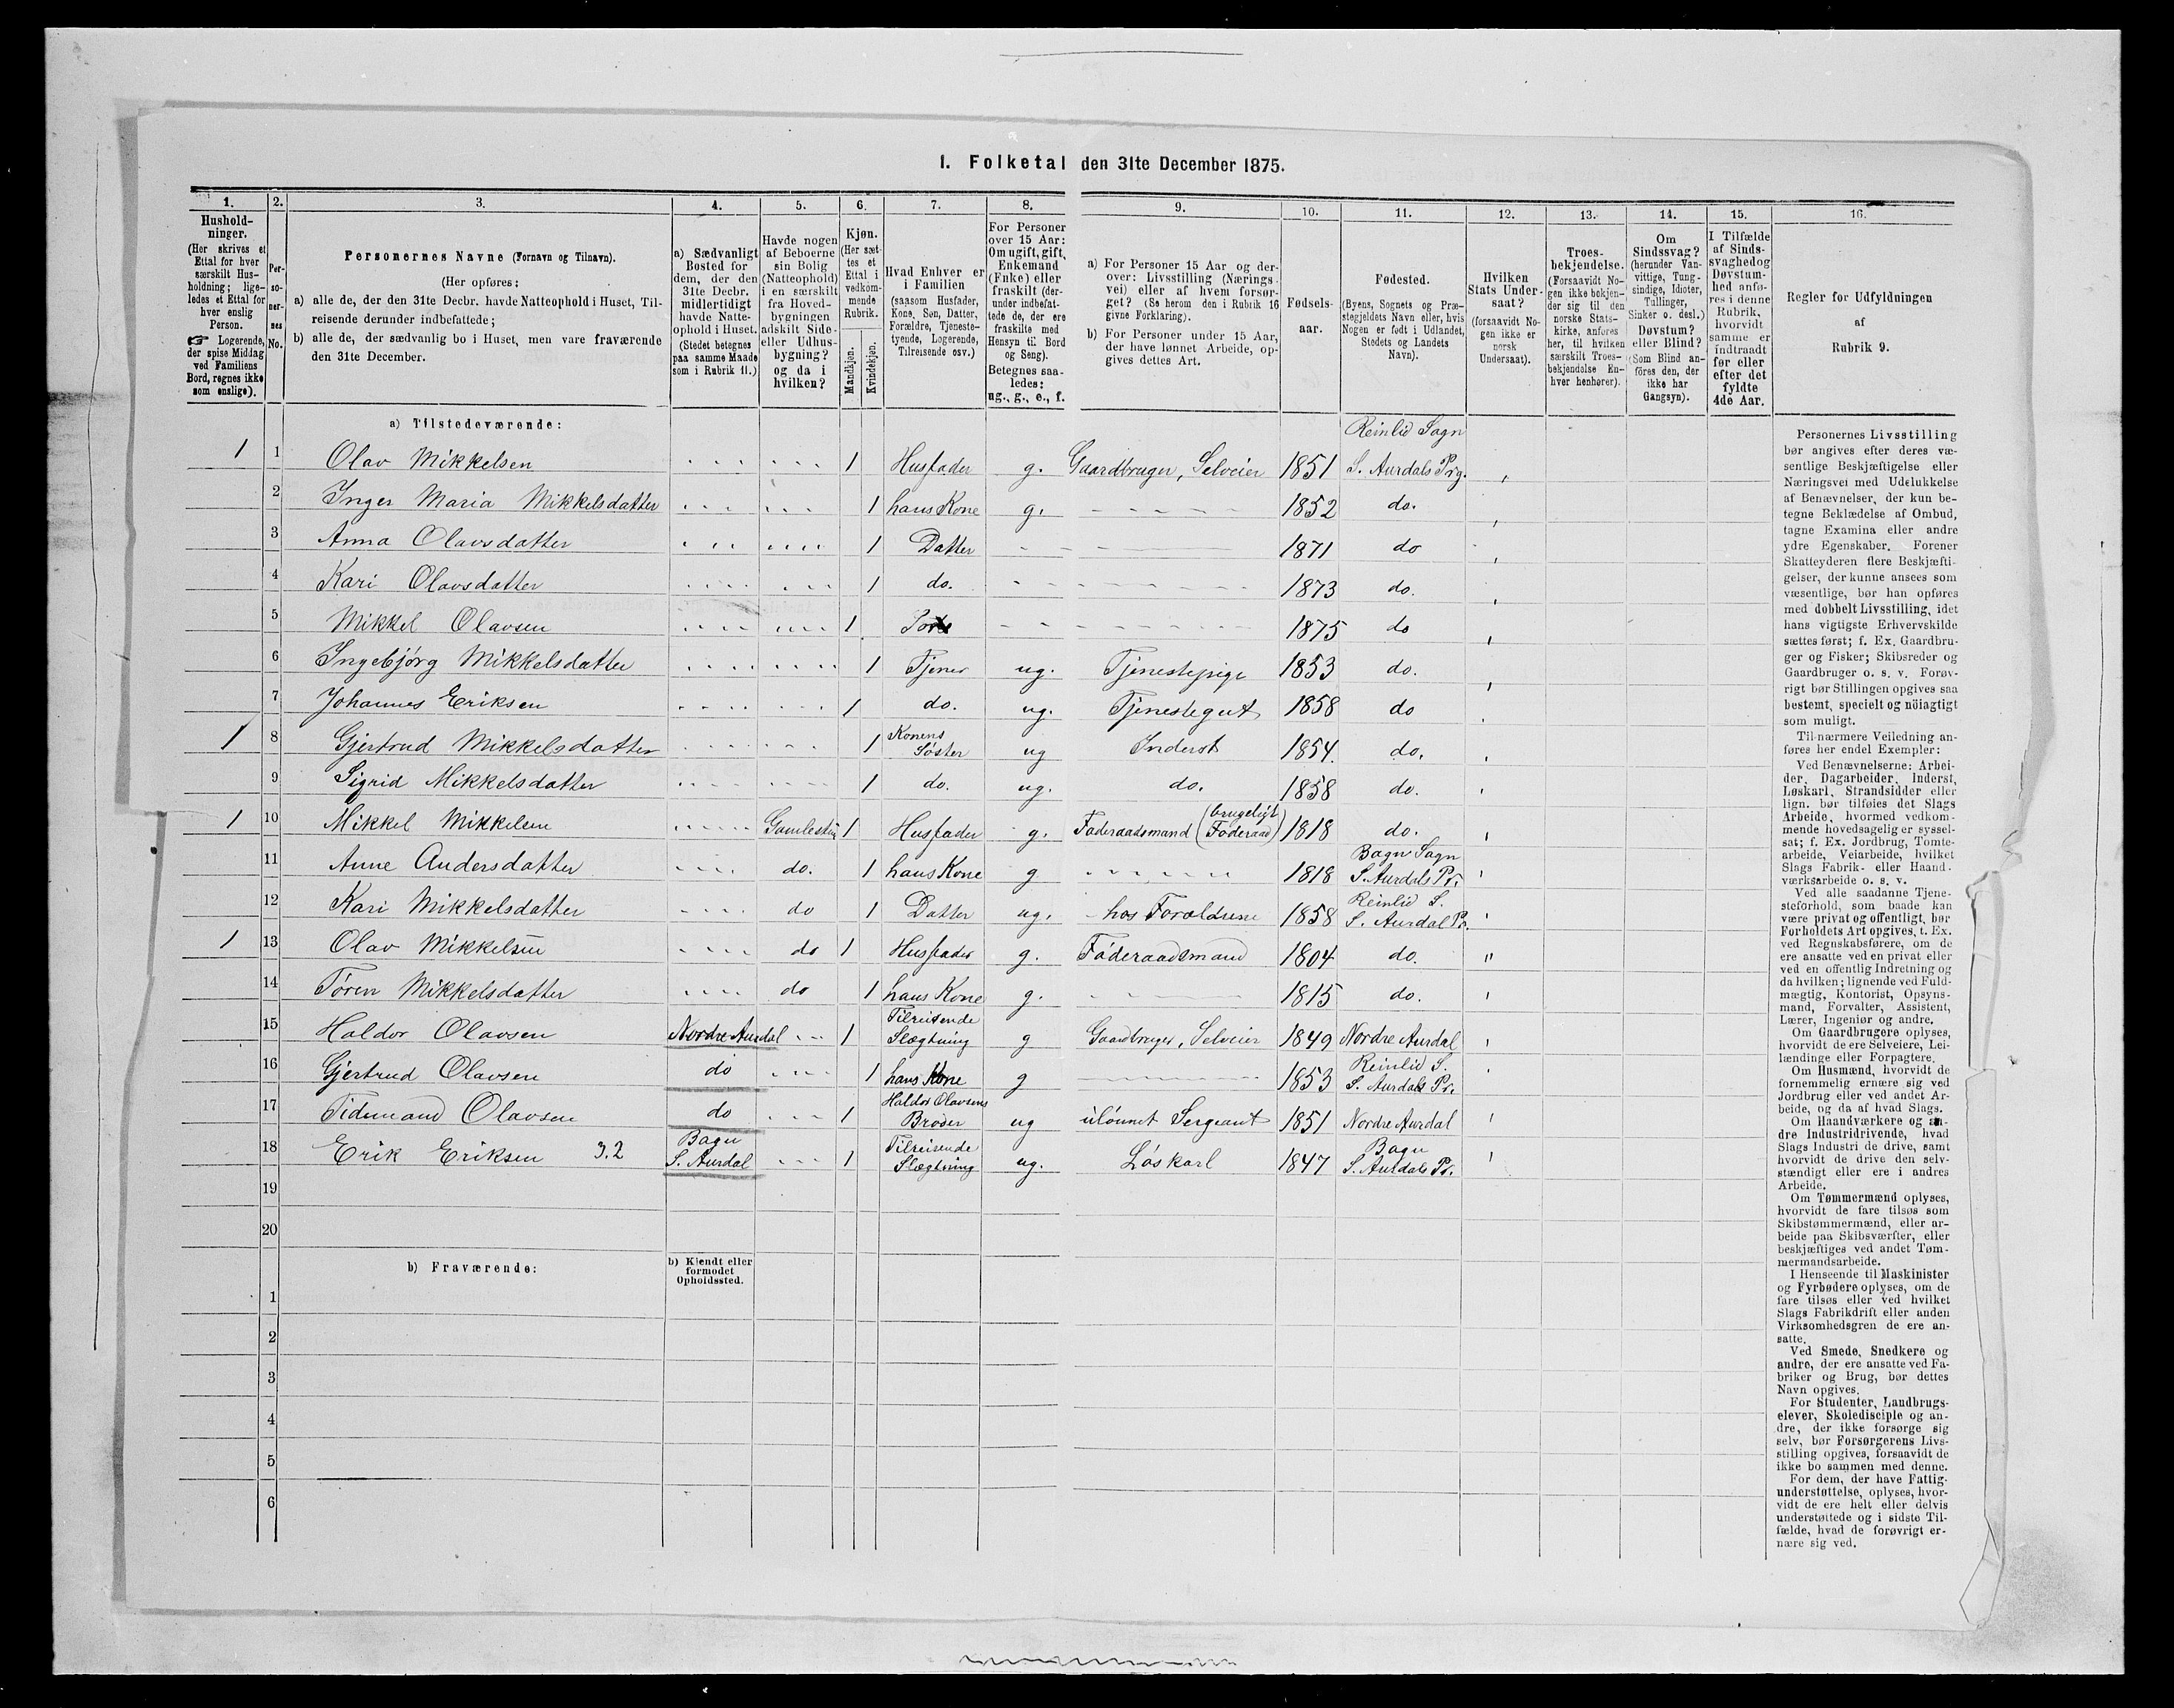 1. Folketal den 31te December 1875.
1. 2. 3. 4. 5. 6. 7. 8. 9. 10. 11. 12. 13. 14. 15. 16.
Hushold-
ninger.
(Her skrives et
Ettal for hver
særskilt Hus-
holdning; lige-
ledes et Ettal for
hver enslig
Person.
☛ Logerende,
der spise Middag
ved Familiens
Bord, regnes ikke
som enslige).
Per-
so-
ner-
nes
No.
Personernes Navne (Fornavn og Tilnavn).
(Her opføres:
a) alle de, der den 31te Decbr. havde Natteophold i Huset, Til-
reisende derunder indbefattede;
b) alle de, der sædvanlig bo i Huset, men vare fraværende
den 31te December.
a) Sædvanligt
Bosted for
dem, der den
31te Decbr.
midlertidigt
havde Natte-
ophold i Huset.
(Stedet betegnes
paa samme Maade
som i Rubrik 11.)
Havde nogen
af Beboerne
sin Bolig
(Natteophold)
i en særskilt
fra Hoved-
bygningen
adskilt Side-
eller Udhus-
bygning?
og da i
hvilken?
Kjøn.
(Her sæt-
tes et
Ettal i
vedkom-
mende
Rubrik.
Mandkjøn.
Kvindekjøn.
Hvad Enhver er
i Familien
(saasom Husfader,
Kone, Søn, Datter,
Forældre, Tjeneste-
tyende, Logerende,
Tilreisende osv.)
For Personer
over 15 Aar:
Om ugift, gift,
Enkemand
(Enke) eller
fraskilt (der-
under indbefat-
tede de, der ere
fraskilte med
Hensyn til Bord
og Seng).
Betegnes saa-
ledes:
ug., g., e., f.
a) For Personer 15 Aar og der-
over: Livsstilling (Nærings-
vei) eller af hvem forsør-
get? (Se herom den i Rubrik 16
givne Forklaring).
b) For Personer under 15 Aar,
der have lønnet Arbeide, op-
gives dettes Art.
Fødsels-
aar.
Fødested.
(Byens, Sognets og Præ-
stegjeldets Navn eller, hvis
Nogen er født i Udlandet,
Stedets og Landets
Navn).
Hvilken
Stats Under-
saat?
(forsaavidt No-
gen ikke er
norsk
Undersaat).
Troes-
bekjendelse.
(Forsaavidt No-
gen ikke bekjen-
der sig til den
norske Stats-
kirke, anføres
her, til hvilken
særskilt Troes-
bekjendelse En-
hver henhører).
Om
Sindssvag?
(herunder Van-
vittige, Tung-
sindige, Idioter,
Tullinger,
Sinker o. desl.)
Døvstum?
eller Blind?
(Som Blind an-
föres den, der
ikke har
Gangsyn).
I Tilfælde
af Sinds-
svaghed og
Døvstum-
hed anfø-
res i denne
Rubrik,
hvorvidt
samme er
indtraadt
før eller
efter det
fyldte
4de Aar.
Regler for Udfyldningen
af
Rubrik 9.
a) Tilstedeværende:
Reinlid Sogn
1 1 Olav Mikkelsen 1 Husfader g. Gaardbruger, Selveier 1851 S. Aurdals Prg.
2 Inger Maria Mikkelsdatter 1 hans Kone g. 1852 do.
3 Anna Olavsdatter 1 Datter 1871 do
4 Kari Olavsdatter 1 do. 1873 do.
5 Mikkel Olavsen 1 1875 do
6 Ingebjörg Mikkelsdatter 1 Tjener ug. Tjenestepige 1853 do.
7 Johannes Eriksen 1 do. ug. Tjenestegut 1858 do
1 8 Gjertrud Mikkelsdatter 1 Konens Söster ug Inderst 1854. do.
9 Sigrid Mikkelsdatter 1 do. ug. do. 1858 do.
1 10 Mikkel Mikkelsen 1 Husfader g. Föderaadsmand (brugeligt Föderaad) 1818 do.
11 Anne Andersdatter do. 1 hans Kone g 1818 Bagn Sogn S. Aurdals Pr.
12 Kari Mikkelsdatter do 1 Datter ug. hos Forældrene 1858 Reinlid S. S. Aurdal Pr.
1 13 Olav Mikkelsen do 1 Husfader g. Föderaadsmand 1804 do.
14 Tören Mikkelsdatter do 1 hans Kone g. 1815 do.
15 Haldor Olavsen Nordre Aurdal 1 Tilreisende Slægtning g Gaardbruger, Selveier 1849 Nordre Aurdal
16 Gjertrud Olavsen do 1 hans Kone g 1853 Reinlid S. S. Aurdals Pr.
17 Tidemand Olavsen do 1 Haldor Olavsens Broder ug ulönnet Sergeant 1851 Nordre Aurdal
18 Erik Eriksen 3.2 Bagn S. Aurdal 1 Tilreisende Slægtning ug. Löskarl 1847 Bagn S. Aurdals Pr.
19
20
b) Fraværende:
b) Kjendt eller
formodet
Opholdssted.
1
2
3
4
5
6
Personernes Livsstilling
bør angives efter deres væ-
sentlige Beskjæftigelse eller
Næringsvei med Udelukkelse
af Benævnelser, der kun be-
tegne Beklædelse af Ombud,
tagne Examina eller andre
ydre Egenskaber. Forener
Skatteyderen flere Beskjæfti-
gelser, der kunne ansees som
væsentlige, bør han opføres
med dobbelt Livsstilling, idet
hans vigtigste Erhvervskilde
sættes først; f. Ex. Gaardbru-
ger og Fisker; Skibsreder og
Gaardbruger o. s. v. Forøv-
rigt bør Stillingen opgives saa
bestemt, specielt og nöiagtigt
som muligt.
Til nærmere Veiledning an-
føres her endel Exempler:
Ved Benævnelserne: Arbei-
der, Dagarbeider, Inderst,
Løskarl, Strandsidder eller
lign. bør tilføies det Slags
Arbeide, hvormed vedkom-
mende hovedsagelig er syssel-
sat; f. Ex. Jordbrug, Tomte-
arbeide, Veiarbeide, hvilket
Slags Fabrik- eller Haand-
værksarbeide o. s. v.
Ved alle saadanne Tjene-
steforhold, som baade kan
være privat og offentligt, bør
Forholdets Art opgives, t. Ex.
ved Regnskabsførere, om de
ere ansatte ved en privat eller
ved en offentlig Indretning og
da hvilken; lignende ved Fuld-
mægtig, Kontorist, Opsyns-
mand, Forvalter, Assistent,
Lærer, Ingeniør og andre.
Om Gaardbrugere oplyses,
hvorvidt de ere Selveiere, Lei-
lændinge eller Forpagtere.
Om Husmænd, hvorvidt de
fornemmelig ernære sig ved
Jordbrug eller ved andet Ar-
beide, og da af hvad Slags.
Om Haandværkere og an-
dre Industridrivende, hvad
Slags Industri de drive, samt
hvorvidt de drive den selv-
stændigt eller ere i andres
Arbeide.
Om Tømmermænd oplyses,
hvorvidt de fare tilsøs som
Skibstømmermænd, eller ar-
beide paa Skibsværfter, eller
beskjæftiges ved andet Tøm-
mermandsarbeide.
I Henseende til Maskinister
og Fyrbødere oplyses, om de
fare tilsøs eller ved hvilket
Slags Fabrikdrift eller anden
Virksomhedsgren de ere an-
satte.
Ved Smede, Snedkere og
andre, der ere ansatte ved Fa-
briker og Brug, bør dettes
Navn opgives.
For Studenter, Landbrugs-
elever, Skoledisciple og an-
dre, der ikke forsørge sig
selv, bør Forsørgerens Livs-
stilling opgives, forsaavidt de
ikke bo sammen med denne.
For dem, der have Fattig-
understøttelse, oplyses, hvor-
vidt de ere helt eller delvis
understøttede og i sidste Til-
fælde, hvad de forøvrigt er-
nære sig ved.